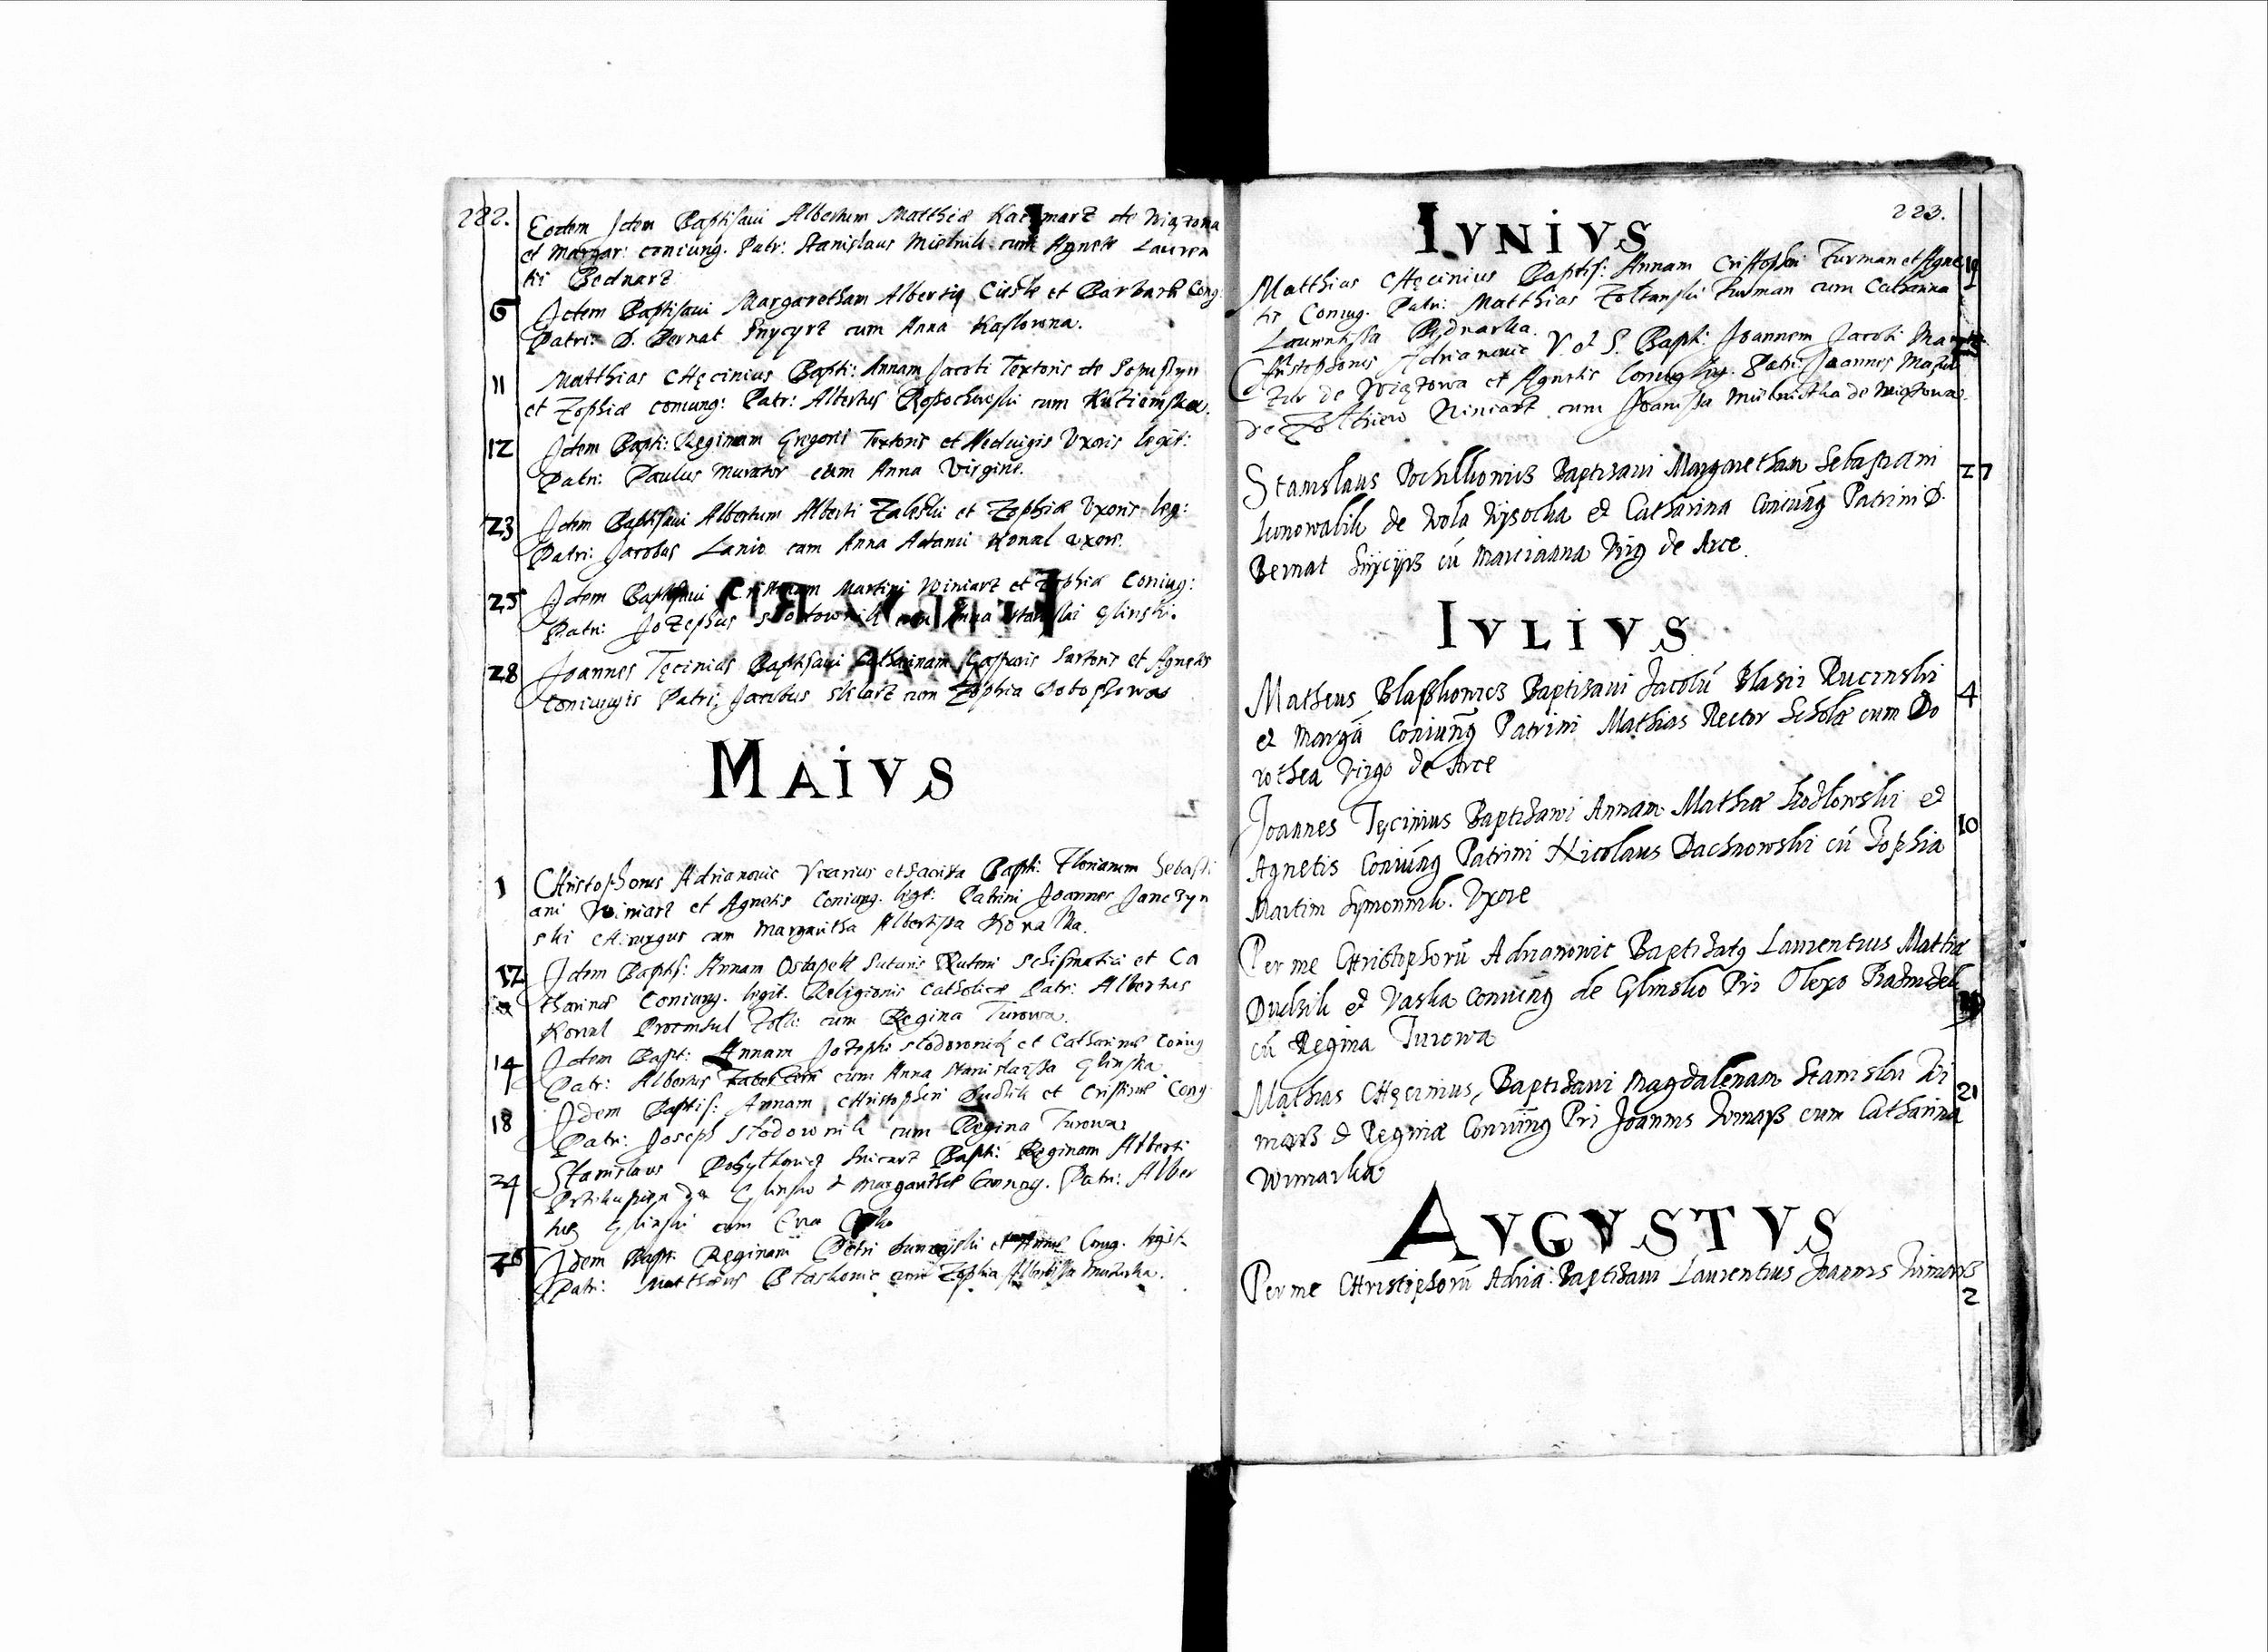 222.
Eodem Idem Baptisaui Albertum Matthiæ Kaczmarz de Wiązowa
et Margar: coniung. Patr: Stanislaus Mielnik cum Agnete Lauren
tii Bednarz
6 Idem Baptisaui Margaretham Alberti et Barbaræ Cong:
Patri: D. Bernat Snycyrz cum Anna Kaslowna.
11 Matthias CHęcinius Bapti: Annam Jacobi Textoris de
et Zophiæ coniung: Patr: Albertus cum
12 Idem Bapti: Reginam Gregorii Textoris et Heduigis Vxoris legit:
Patri: Paulus Murator cum Anna Virgine.
23 Idem Baptisaui Albertum Alberti Zaleski et Zophiæ Vxoris leg:
Patri: Jacobus Lanio cum Anna Adami Koual vxore.
25 Idem Baptisaui Martini Winiarz et Zophiæ Coniug:
Patri: Jozephus Slodownik cum Anna Stanislai Glinski.
28 Joannes Tęcinius Baptisaui Catharinam Gasparis Sartoris et Agnetis
Coniugis Patri: Jacobus cum Zophia
MAIVS
1 CHristophorus Adrianouic Vicarius et Bapti: Florianum Sebasti
ani Winiarz et Agnetis Coniung. legt: Patrini Joannes Janczyn
ski CHirurgus cum Margaritha Albertissa Kowalka.
12 Idem Baptis: Annam Ostapek Sutoris Ruteni Schismatici et Ca
tharinæ Coniung. legit. Religionis Catholicæ Patr: Albertus
Koual Proconsul Zolk: cum Regina Turowa.
14 Idem Bapt: Annam Jozephi Slodownik et Catharinæ Coniug
Patr: Albertus cum Anna Stanislaissa Glinska.
18 Idem Baptis: Annam CHristopheri Dudzik et Cristinæ Cong
Patr: Joseph Slodownik cum Regina Turowa
24 Stanislaus Snicarz Bapti: Reginam Alberti
de Glinsko et Margarithæ Coniung. Patr: Alber
tus Glinski cum Eua
26 Idem Bapti: Reginam Petri et Annæ Coniug. legit.
Patri: Matthæus Blaskowic cum Zophia Albertissa
223.
IVNIVS
Matthias CHęcinius Baptis: Annam Cristopheri Furman et Agne 19
tis Coniug. Patri: Matthias Zoltanski Furman cum Catharina
Laurentissa Bednarka.
CHristophorus Adrianouic V. et S. Bapti: Joannem Jacobi
de Wiązowa et Agnetis Coniug leg. Patri: Joannes Mazur
de Zolkiew Winiarz cum Joanissa de Wiązowa.
Stanislaus Baptizaui Margaretham Sebastiani 27
de Wola Wysocka et Catharina Coniung Patrini D.
Bernat Snycyrz cu Marcianna Virg de Arce.
IVLIVS
Matheus Blaszkowicz Baptizaui Jacobu Blasii Rucinski 4
et Marga Coniung Patrini Mathias Rector Scholæ cum Do
rothea Virgo de Arce
Joannes Tęcinius Baptizaui Annam Mathiæ et 10
Agnetis Coniung Patrini Nicolaus Dachnowski cu Zophia
Martini Symonnik. Vxore
Per me CHristophoru Adrianowic Baptizatus Laurentius Mathiæ
Dudzik et Vaska coniung de Glinsko Pri Olexo
cu Regina Turowa
Mathias CHęcinius, Baptizaui Magdalenam Stanislai Wi 21
niarz et Reginæ Coniung Pri Joannis Winiarz cum Catharina
Winiarka
AVGVSTVS
Per me CHristophoru Adria: Baptizaui Laurentius Joannis Winiarz 2